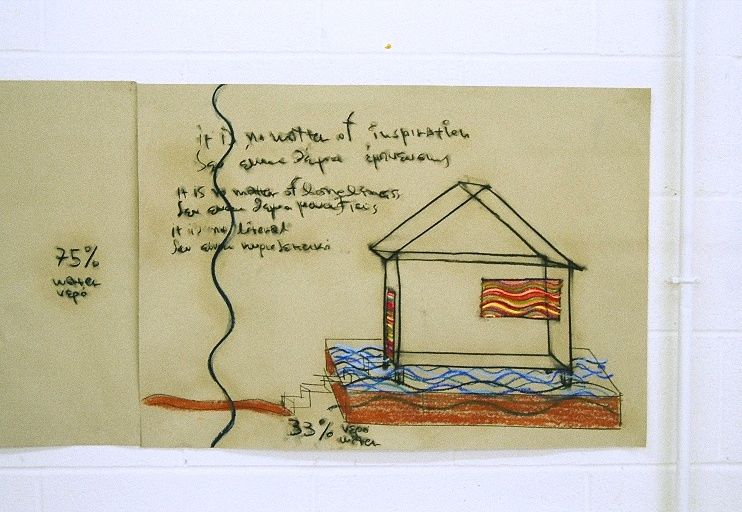 it is no matter of inspiration
δεν είναι θέμα έμπνευσης
it is no matter of loneliness
δεν είναι θέμα μοναξιάς
it is no literal
δεν είναι
75%
water
νερό
33% νερό
water